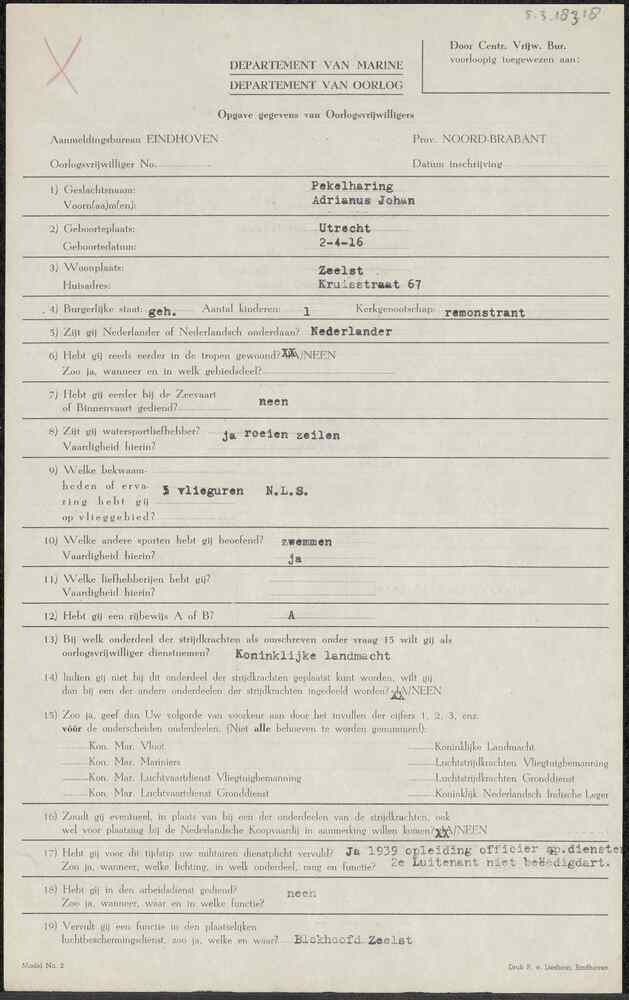 5.3.18318
Door Centr. Vrijw. Bur.
voorloopig toegewezen aan:
DEPARTEMENT VAN MARINE
DEPARTEMENT VAN OORLOG
Opgave gegevens van Oorlogsvrijwilligers
Aanmeldingsbureau EINDHOVEN Prov. NOORD-BRABANT
Oorlogsvrijwilliger No. Datum inschrijving
1) Geslachtsnaam: Pekelharing
Voorn(aa)m(en): Adrianus Johan
2) Geboorteplaats: Utrecht
Geboortedatum: 2-4-16
3) Woonplaats: Zeelst
Huisadres: Kruisstraat 67
4) Burgerlijke staat: geh. Aantal kinderen: 1 Kerkgenootschap: remonstrant
5) Zijt gij Nederlander of Nederlandsch onderdaan? Nederlander
6) Hebt gij reeds eerder in de tropen gewoond? XXA/NEEN
Zoo ja, wanneer en in welk gebiedsdeel?
7) Hebt gij eerder bij de Zeevaart
of Binnenvaart gediend? neen
8) Zijt gij watersportliefhebber? ja roeien zeilen
Vaardigheid hierin?
9) Welke bekwaam-
heden of erva-
ring hebt gij
op vlieggebied? 5 vlieguren N.L.S.
10) Welke andere sporten hebt gij beoefend? zwemmen
Vaardigheid hierin? ja
11) Welke liefhebberijen hebt gij?
Vaardigheid hierin?
12) Hebt gij een rijbewijs A of B? A
13) Bij welk onderdeel der strijdkrachten als omschreven onder vraag 15 wilt gij als
oorlogsvrijwilliger dienstnemen? Koninklijke landmacht
14) Indien gij niet bij dit onderdeel der strijdkrachten geplaatst kunt worden, wilt gij
dan bij een der andere onderdeelen der strijdkrachten ingedeeld worden? JA/NEEN
15) Zoo ja, geef dan Uw volgorde van voorkeur aan door het invullen der cijfers 1, 2, 3, enz.
vóór de onderscheiden onderdeelen. (Niet alle behoeven te worden genummerd):
Kon. Mar. Vloot Koninklijke Landmacht
Kon. Mar. Mariniers Luchtstrijdkrachten Vliegtuigbemanning
Kon. Mar. Luchtvaartdienst Vliegtuigbemanning Luchtstrijdkrachten Gronddienst
Kon. Mar. Luchtvaartdienst Gronddienst Koninklijk Nederlandsch Indische Leger
16) Zoudt gij eventueel, in plaats van bij een der onderdeelen van de strijdkrachten, ook
wel voor plaatsing bij de Nederlandsche Koopvaardij in aanmerking willen komen? XXA/NEEN
17) Hebt gij voor dit tijdstip uw militairen dienstplicht vervuld? Ja 1939 opleiding officier sp.diensten
Zoo ja, wanneer, welke lichting, in welk onderdeel, rang en functie? 2e Luitenant niet beëedigdart.
18) Hebt gij in den arbeidsdienst gediend? neen
Zoo ja, wanneer, waar en in welke functie?
19) Vervult gij een functie in den plaatselijken
luchtbeschermingsdienst, zoo ja, welke en waar? Blokhoofd Zeelst
Model No. 2 Druk F. v. Lieshout, Eindhoven